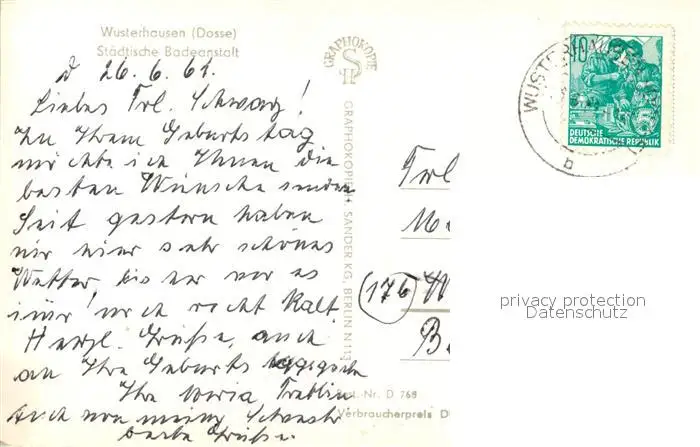 Wusterhausen (Dosse)
Städtische Badeanstalt
d 26.6.61.
Liebes Frl. Schwarz!
Zu Ihrem Geburtstag
möchte ich Ihnen die
besten Wünsche senden
Seit gestern haben
wir hier sehr schönes
Wetter, bis her war es
immer noch recht kalt.
Herzl. Grüße, auch
an Ihre Geburtstagsgäste
Ihre Maria
Auch von meiner Schwester
beste Grüße.
GRAPHOKOPIE
GRAPHOKOPIE H. SANDER KG, BERLIN N 113
Best.-Nr. D 768
Verbraucherpreis D
10
DEUTSCHE
DEMOKRATISCHE REPUBLIK
b
Frl
(176) W
B
privacy protection
Datenschutz